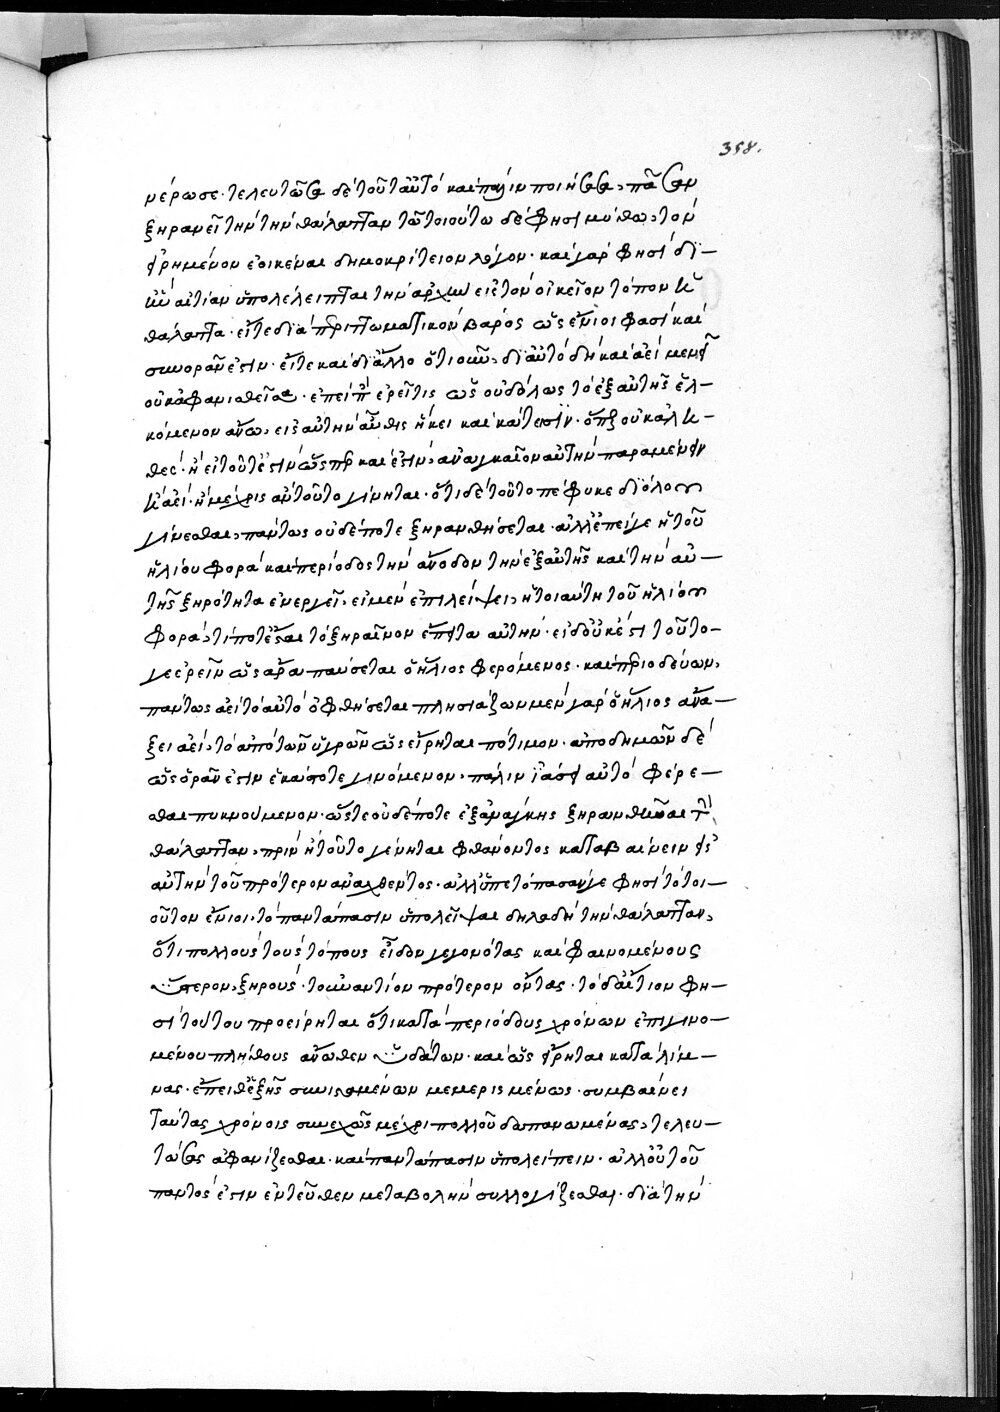 358.
μέρωσε· τελευτῶσα δὲ τοῦτ αὐτὸ καὶ πάλιν ποιήσασα, πᾶσαν
ξηρανεῖ τὴν τὴν θάλατταν τῶ τοιούτω δέ φησι μύθω, τὸν
εἰρημένον ἐοικέναι δημοκρίτειον λόγον· καὶ γάρ φησι δι
αἰτίαν ὑπολέλειπται τὴν ἀρχὴν εἰς τὸν οἰκεῖον τόπον ἡ
θάλαττα· εἴτε διὰ περιττωματικὸν βάρος ὥς ἔνιοί φασι καὶ
συνορᾶν ἐστιν· εἴτε καὶ δι ἄλλο ὁτιοῦν, δι αὐτὸ δὴ καὶ ἀεὶ μένει
οὐκ ἀφανισθεῖσα· ἐπεί περ ἐρεῖ τις ὡς οὐδόλως τὸ ἐξ αὐτῆς ἑλ-
κόμενον ἄνω, εἰς αὐτὴν αὖθις ἥκει καὶ κάτεισιν· ὅπερ οὐκ ἀλη-
θές· ἢ εἰ τοῦτ ἔστιν ὥσπερ καὶ ἔστιν, ἀναγκαῖον αὐτὴν παραμένειν
ἢ ἀεί· ἢ μέχρις ἂν τοῦτο γίνηται· ὅτι δὲ τοῦτο πέφυκε διόλου
γίνεσθαι, πάντως οὐδέποτε ξηρανθήσεται· ἀλλ ἐπείγε ἡ τοῦ
ἡλίου φορὰ καὶ περίοδος τὴν ἄνοδον τὴν ἐξ αὐτῆς καὶ τὴν αὐ-
τῆς ξηρότητα ἐνεργεῖ, εἰ μὲν ἐπιλείψει, ἡ τοιαύτη τοῦ ἡλίου
φορά, τί ποτ ἔσται τὸ ξηραῖνον ἔπειτα αὐτήν· εἰ δ οὐκ ἔστι τοῦτο
γε ἐρεῖν ὡς ἄρα παύσεται ὁ ἥλιος φερόμενος· καὶ περιοδεύων,
πάντως ἀεὶ τὸ αὐτὸ ὀφθήσεται πλησιάζων μὲν γὰρ ὁ ἥλιος ἀνά-
ξει ἀεί, τὸ ἀπὸ τῶν ὑγρῶν ὡς εἴρηται πότιμον· ἀποδημῶν δὲ
ὡς ὁρᾶν ἐστιν ἑκάστοτε γινόμενον, πάλιν ἐάσει αὐτὸ φέρε-
σθαι πυκνούμενον· ὥστε οὐδέποτε ἐξ ἀνάγκης ξηρανθῆναι τὴν
θάλατταν, πρὶν ἢ τοῦτο γένηται φθάνοντος καταβαίνειν εἰς
αὐτὴν τοῦ πρότερον ἀναχθέντος· ἀλλ ὑπετόπασάν γε φησὶ τὸ τοι-
οῦτον ἔνιοι, τὸ παντάπασιν ὑπολεῖψαι δηλαδὴ τὴν θάλατταν,
ὅτι πολλοὺς τοὺς τόπους εἶδον γεγονότας καὶ φαινομένους
ὕστερον, ξηρούς· τοὐναντίον πρότερον ὄντας· τὸ δ αἴτιον φη-
σὶ τούτου προείρηται ὅτι κατὰ περιόδους χρόνων ἐπιγινο-
μένου πλήθους ἄνωθεν ὑδάτων· καὶ ὡς εἴρηται κατὰ λίμ-
νας· ἔπειθ ἑξῆς συνισταμένων μεμερισμένως· συμβαίνει
ταύτας χρόνοις συνεχῶς μέχρι πολλοῦ δαπανωμένας, τελευ-
τώσας ἀφανίζεσθαι· καὶ παντάπασιν ὑπολείπειν· ἀλλ οὐ τοῦ
παντός ἐστιν ἐντεῦθεν μεταβολὴν συλλογίζεσθαι· διὰ τὴν